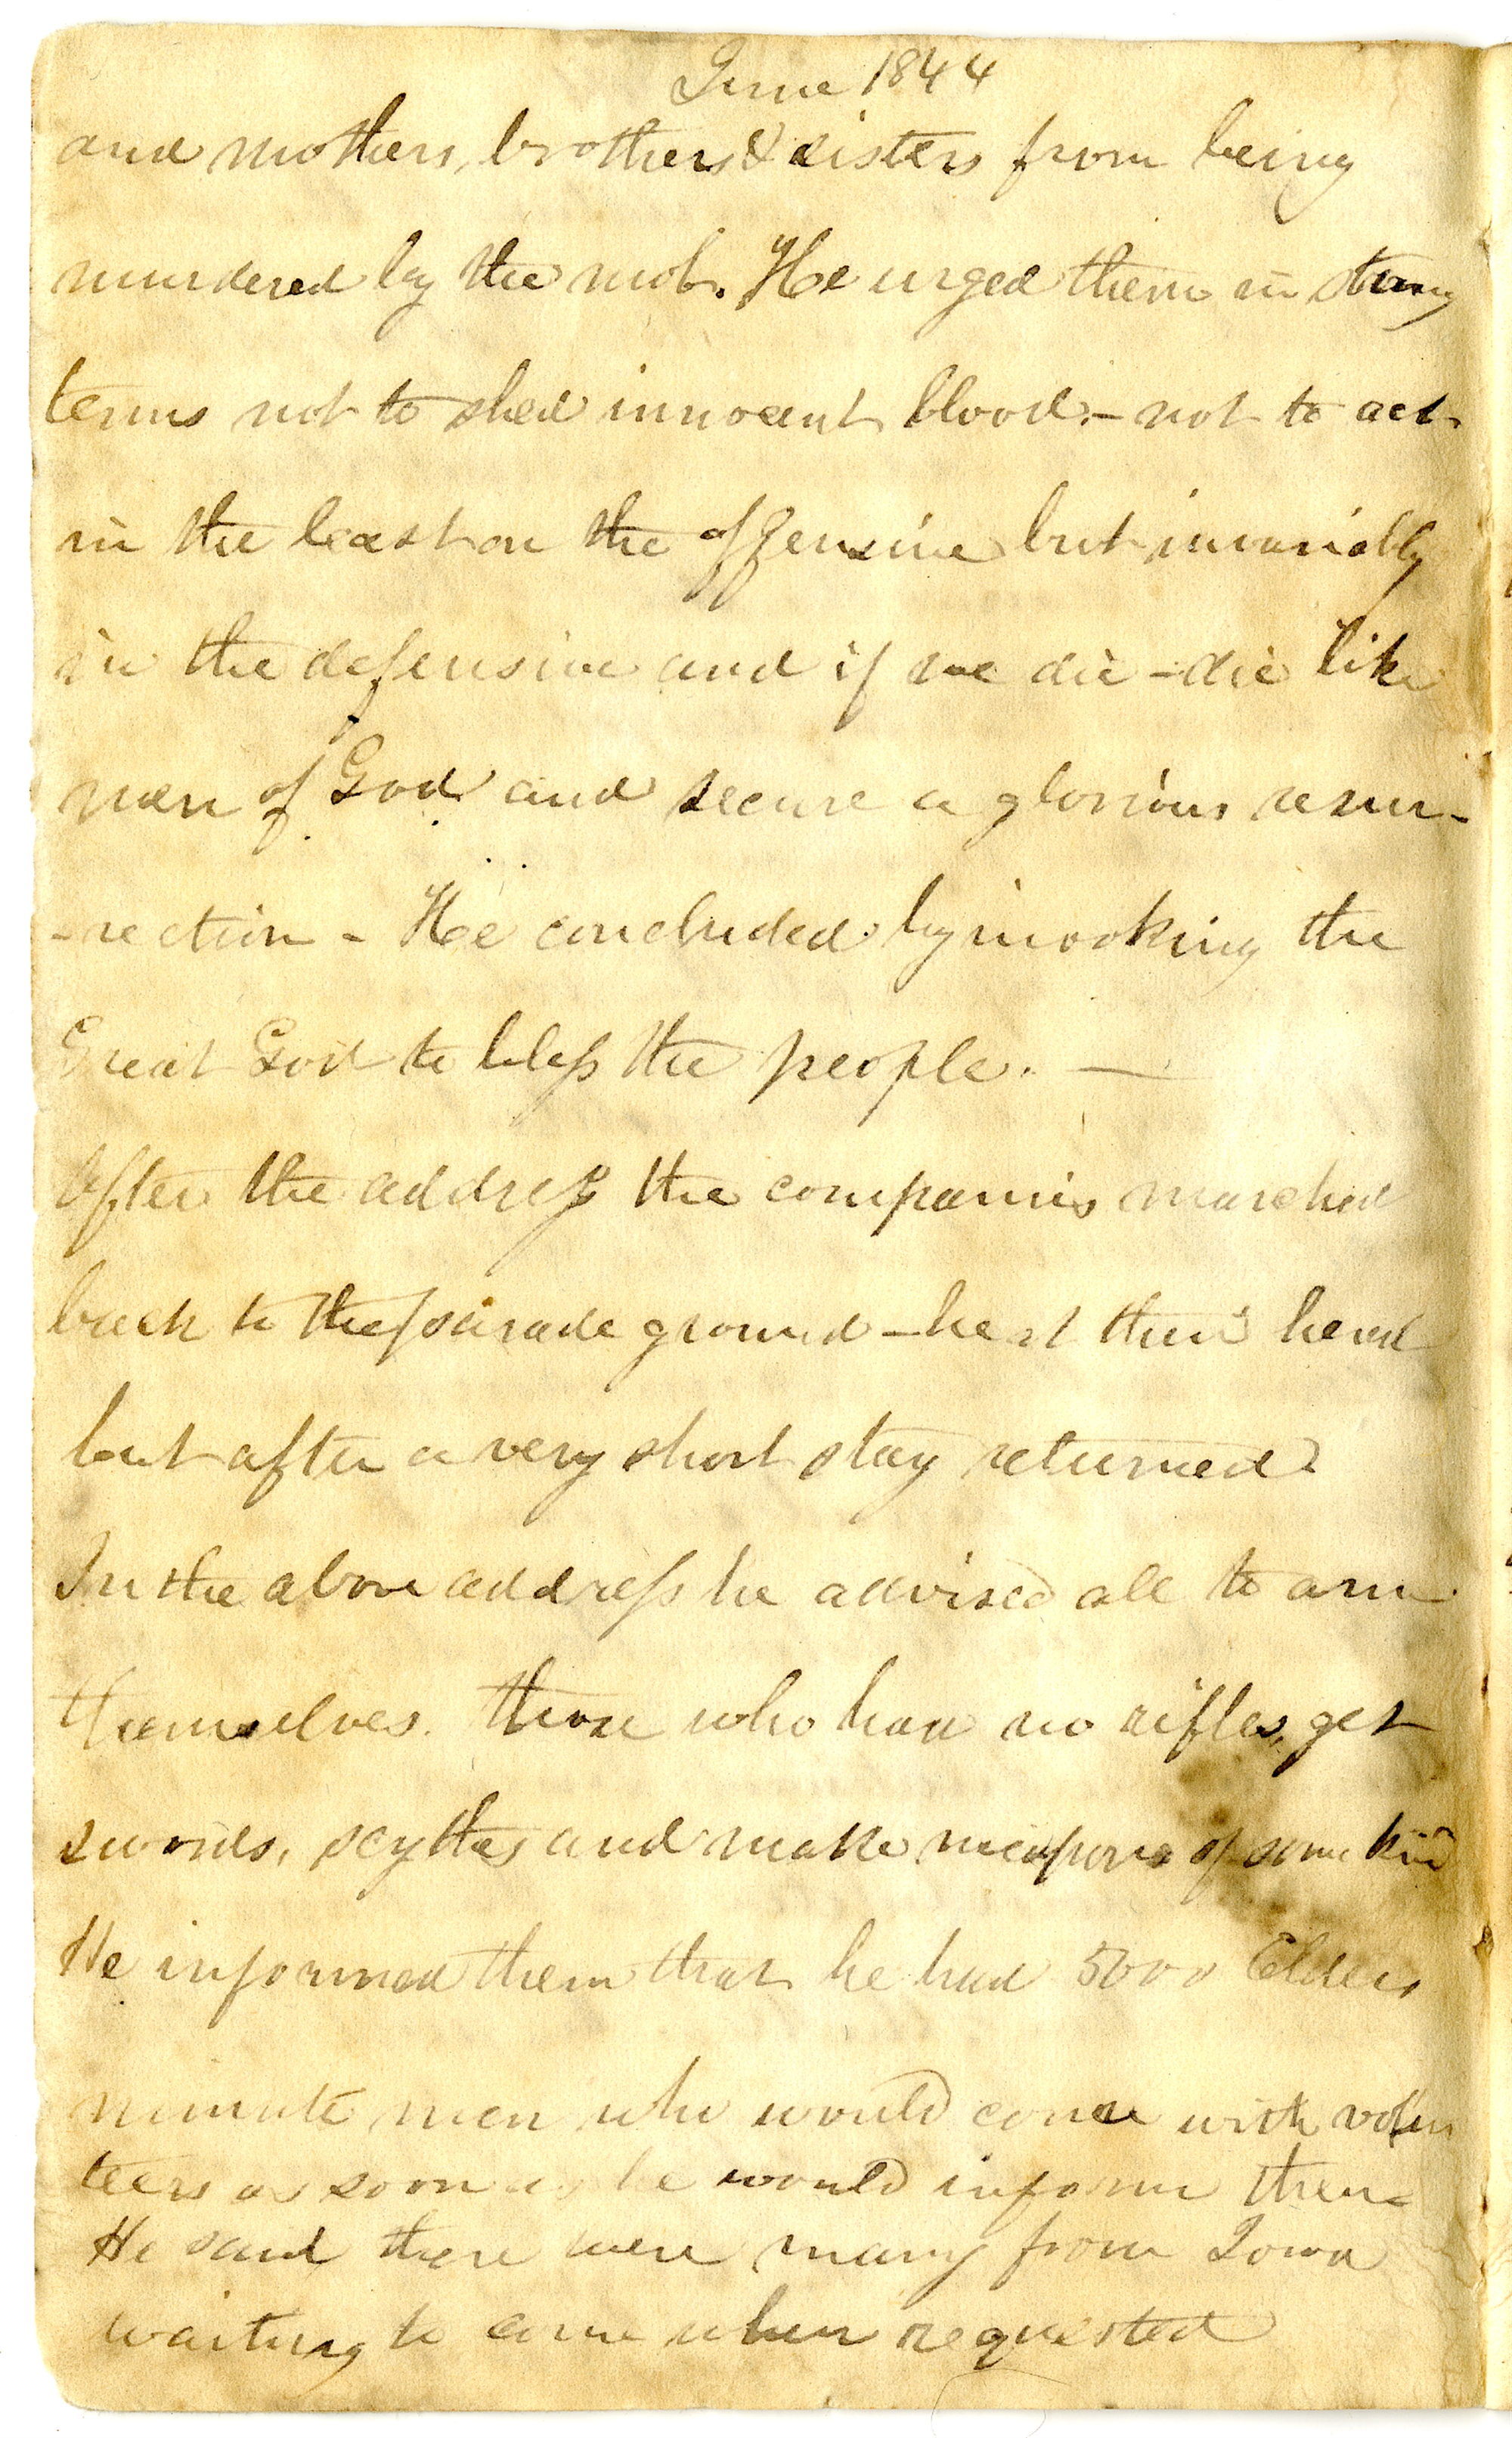 June 1844
and mothers, brothers & sisters from being
murdered by the mob. He urged them in strong
terms not to shed innocent blood - not to act
in the least on the offensive but invariably
in the defensive and if we die - die like
men of God and secure a glorious resur-
-rection - He concluded by invoking the
Great God to bless the people. —
After the address the companies marched
back to the parade ground - the
but after a very short stay returned
In the above address he advised all to arm
themselves. those who had no rifles, get
swords, scythes and make weapons of some kind
He informed them that he had 5000 Elders
minute men who would come with volun
teers as soon as he would inform them
He said there were many from Iowa
waiting to come when requested